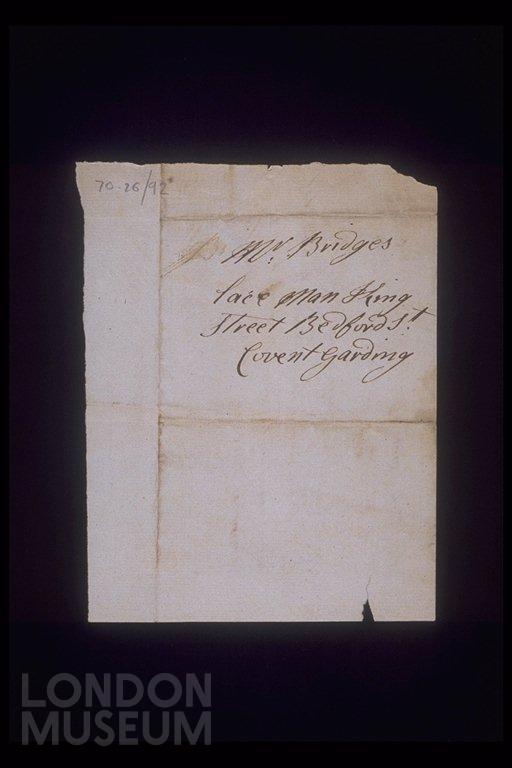 70·26/92
Mr. Bridges
lace Man King
Street Bedford St.
Covent Garding
LONDON
MUSEUM